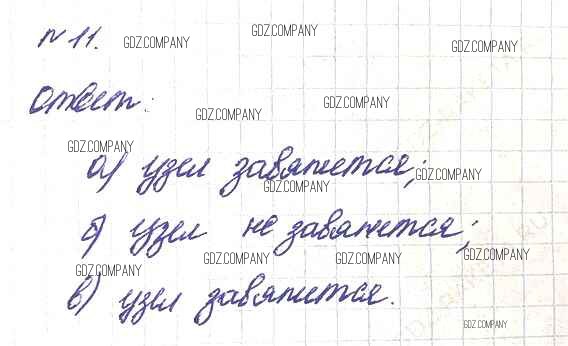 № 11. GDZ.COMPANY GDZ.COMPANY GDZ.COMPANY
Ответ: GDZ.COMPANY GDZ.COMPANY
GDZ.COMPANY
а) узел завяжется; GDZ.COMPANY
GDZ.COMPANY
б) узел не завяжется;
GDZ.COMPANY GDZ.COMPANY GDZ.COMPANY GDZ.COMPANY
в) узел завяжется.
GDZ.COMPANY